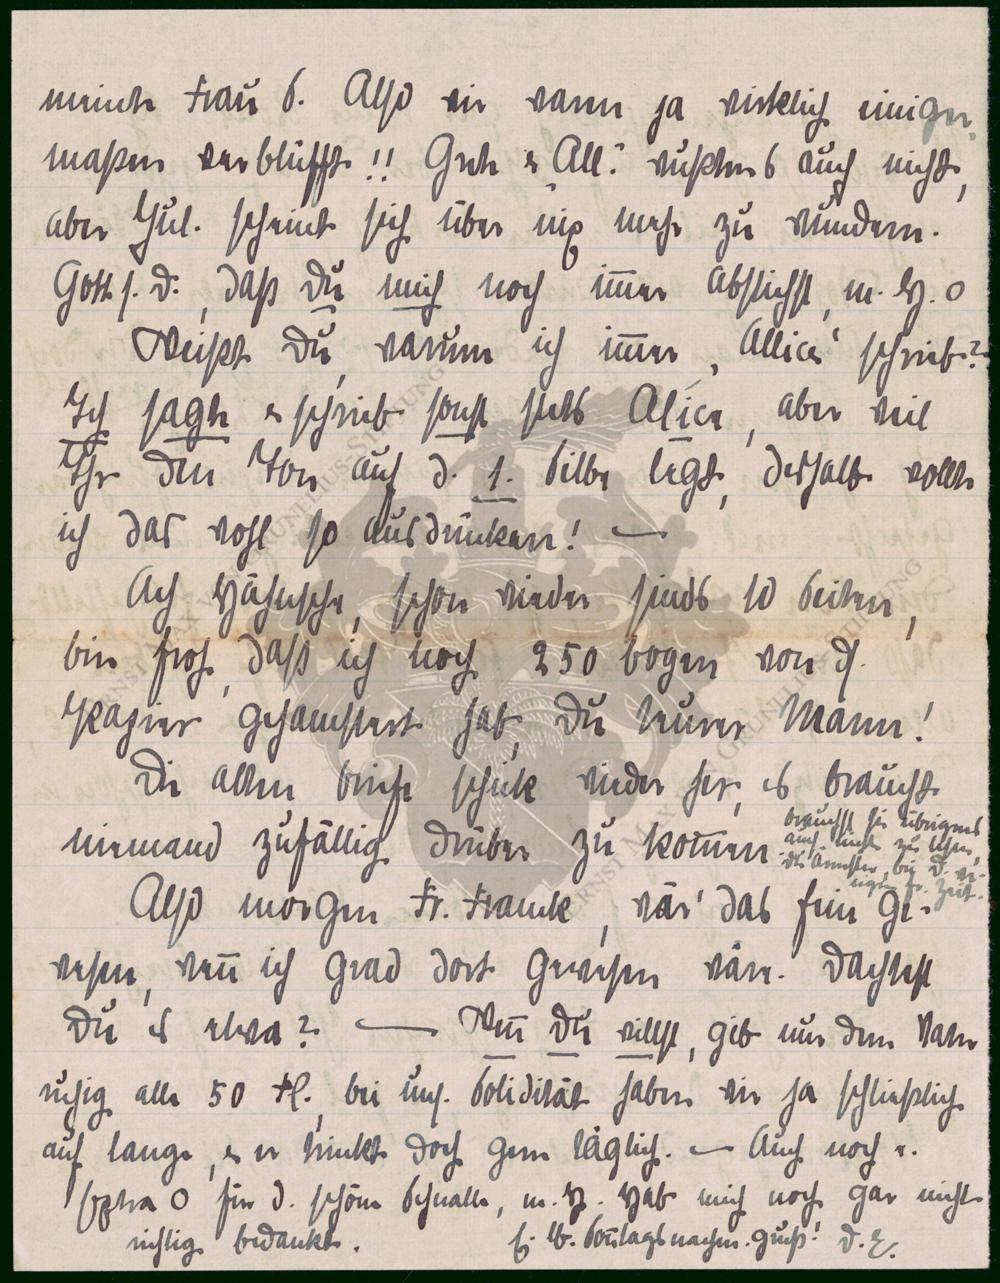 meinte Frau S. Also wir waren ja wirklich einiger-
maßen verblüfft!! Grete & "All." wußten's auch nicht,
aber Jul. scheint sich über nix mehr zu wundern.
Gott s. D., daß Du mich noch immer abstichst, m. H. O
Weißt Du, warum ich immer „Allice“ schrieb?
Ich sagte & schrieb sonst stets Alice, aber weil
Ihr den Ton auf d. 1. Silbe legt, deshalb wollte
ich das wohl so ausdrücken! —
Ach Hähnsche, schon wieder sinds 10 Seiten,
bin froh, daß ich noch 250 bogen von d.
Papier gehamstert hab, Du teurer Mann!
Die alten briefe schick wieder her, es braucht
niemand zufällig drüber zu kommen
brauchst sie übrigens
auch nicht zu lesen,
Du Ärmster, bei D. we-
nigen fr. Zeit.
Also morgen Fr. Franck, wär' das fein ge-
wesen, wenn ich grad dort gewesen wäre. Dachtest
Du es etwa? — Wenn Du willst, gib nur dem
ruhig alle 50 Fl., bei uns. Solidität haben wir ja schließlich
auf lange, & er trinkt doch gern täglich. — Auch noch e.
Extra O für d. schöne Schnalle, m. H. Hab mich noch gar nicht
richtig bedankt.
E. lb. Sonntagsnachm.gruß! D. E.